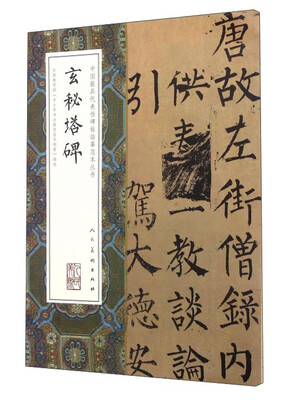 唐故左街僧錄内
供教談論
引駕大德安
中国最具代表性碑帖临摹范本丛书
玄秘塔碑
人民美术出版社